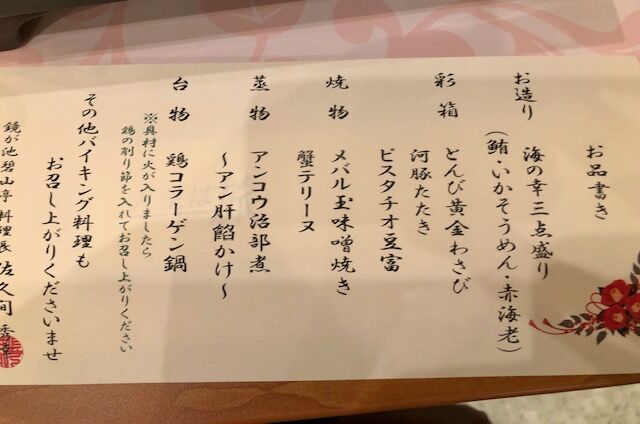 お品書き
お造り 海の幸三点盛り
(鮪・いかそうめん・赤海老)
彩箱 とんび黄金わさび
河豚たたき
ピスタチオ豆富
焼物 メバル玉味噌焼き
蟹テリーヌ
蒸物 アンコウ治部煮
~アン肝餡かけ~
台物 鶏コラーゲン鍋
※具材に火が入りましたら
鶏の削り節を入れてお召し上がりください
その他バイキング料理も
お召し上がりくださいませ
鏡が池碧山亭 料理長 佐久間